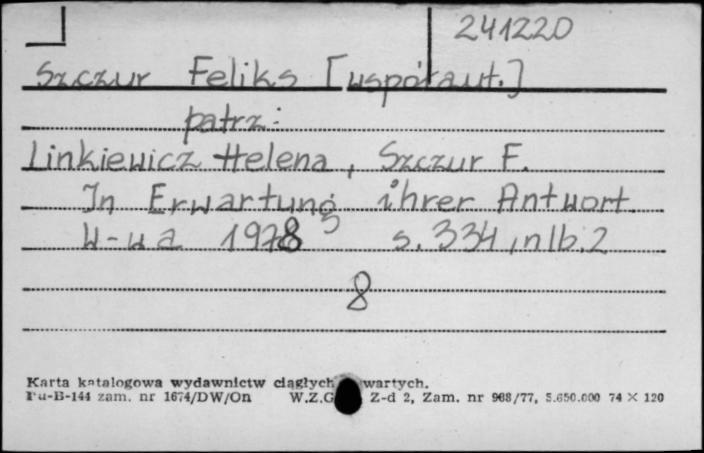 241220
Szczur Feliks [współaut.]
patrz:
Linkiewicz Helena, Szczur F.
In Erwartung ihrer Antwort.
W-wa 1978 s. 334, nlb. 2
8
Karta katalogowa wydawnictw ciągłych wartych.
Pu-B-144 zam. nr 1674/DW/On W.Z.G Z-d 2, Zam. nr 968/77, 5.650.000 74 × 120